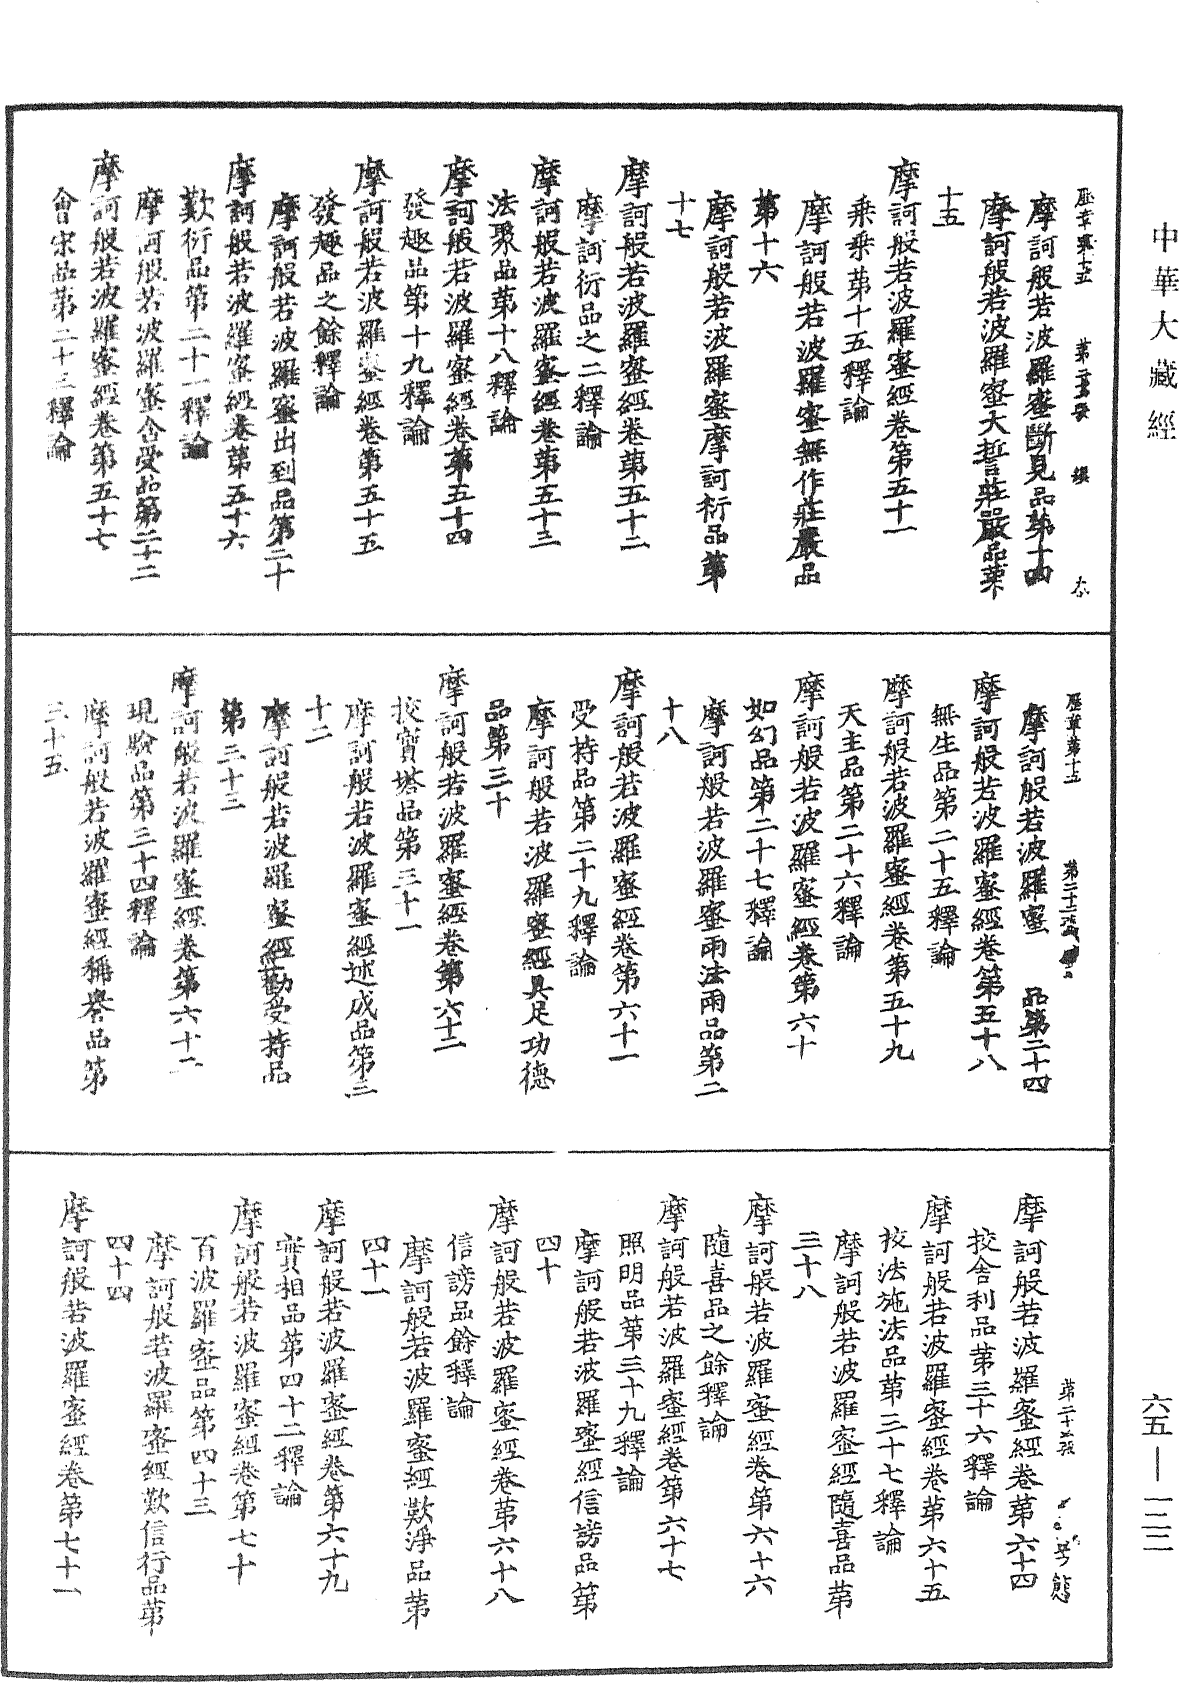 中華大藏經
摩訶般若波羅蜜斷見品第十四
摩訶般若波羅蜜大誓莊嚴品第
十五
摩訶般若波羅蜜經卷第五十一
乘乘第十五釋論
摩訶般若波羅蜜無作莊嚴品
第十六
摩訶般若波羅蜜摩訶衍品第
十七
摩訶般若波羅蜜經卷第五十二
摩訶衍品之二釋論
摩訶般若波羅蜜經卷第五十三
法聚品第十八釋論
摩訶般若波羅蜜經卷第五十四
發趣品第十九釋論
摩訶般若波羅蜜經卷第五十五
發趣品之餘釋論
摩訶般若波羅蜜出到品第二十
摩訶般若波羅蜜經卷第五十六
歎衍品第二十一釋論
摩訶般若波羅蜜含受品第二十二
摩訶般若波羅蜜經卷第五十七
會宗品第二十三釋論
摩訶般若波羅蜜 品第二十四
摩訶般若波羅蜜經卷第五十八
無生品第二十五釋論
摩訶般若波羅蜜經卷第五十九
天主品第二十六釋論
摩訶般若波羅蜜經卷第六十
如幻品第二十七釋論
摩訶般若波羅蜜雨法雨品第二
十八
摩訶般若波羅蜜經卷第六十一
受持品第二十九釋論
摩訶般若波羅蜜經具足功德
品第三十
摩訶般若波羅蜜經卷第六十二
挍寶塔品第三十一
摩訶般若波羅蜜經述成品第三
十二
摩訶般若波羅蜜經勸受持品
第三十三
摩訶般若波羅蜜經卷第六十二
現驗品第三十四釋論
摩訶般若波羅蜜經稱譽品第
三十五
摩訶般若波羅蜜經卷第六十四
挍舍利品第三十六釋論
摩訶般若波羅蜜經卷第六十五
挍法施法品第三十七釋論
摩訶般若波羅蜜經隨喜品第
三十八
摩訶般若波羅蜜經卷第六十六
隨喜品之餘釋論
摩訶般若波羅蜜經卷第六十七
照明品第三十九釋論
摩訶般若波羅蜜經信謗品第
四十
摩訶般若波羅蜜經卷第六十八
信謗品餘釋論
摩訶般若波羅蜜經歎淨品第
四十一
摩訶般若波羅蜜經卷第六十九
實相品第四十二釋論
摩訶般若波羅蜜經卷第七十
百波羅蜜品第四十三
摩訶般若波羅蜜經歎信行品第
四十四
摩訶般若波羅蜜經卷第七十一
六五—一三二